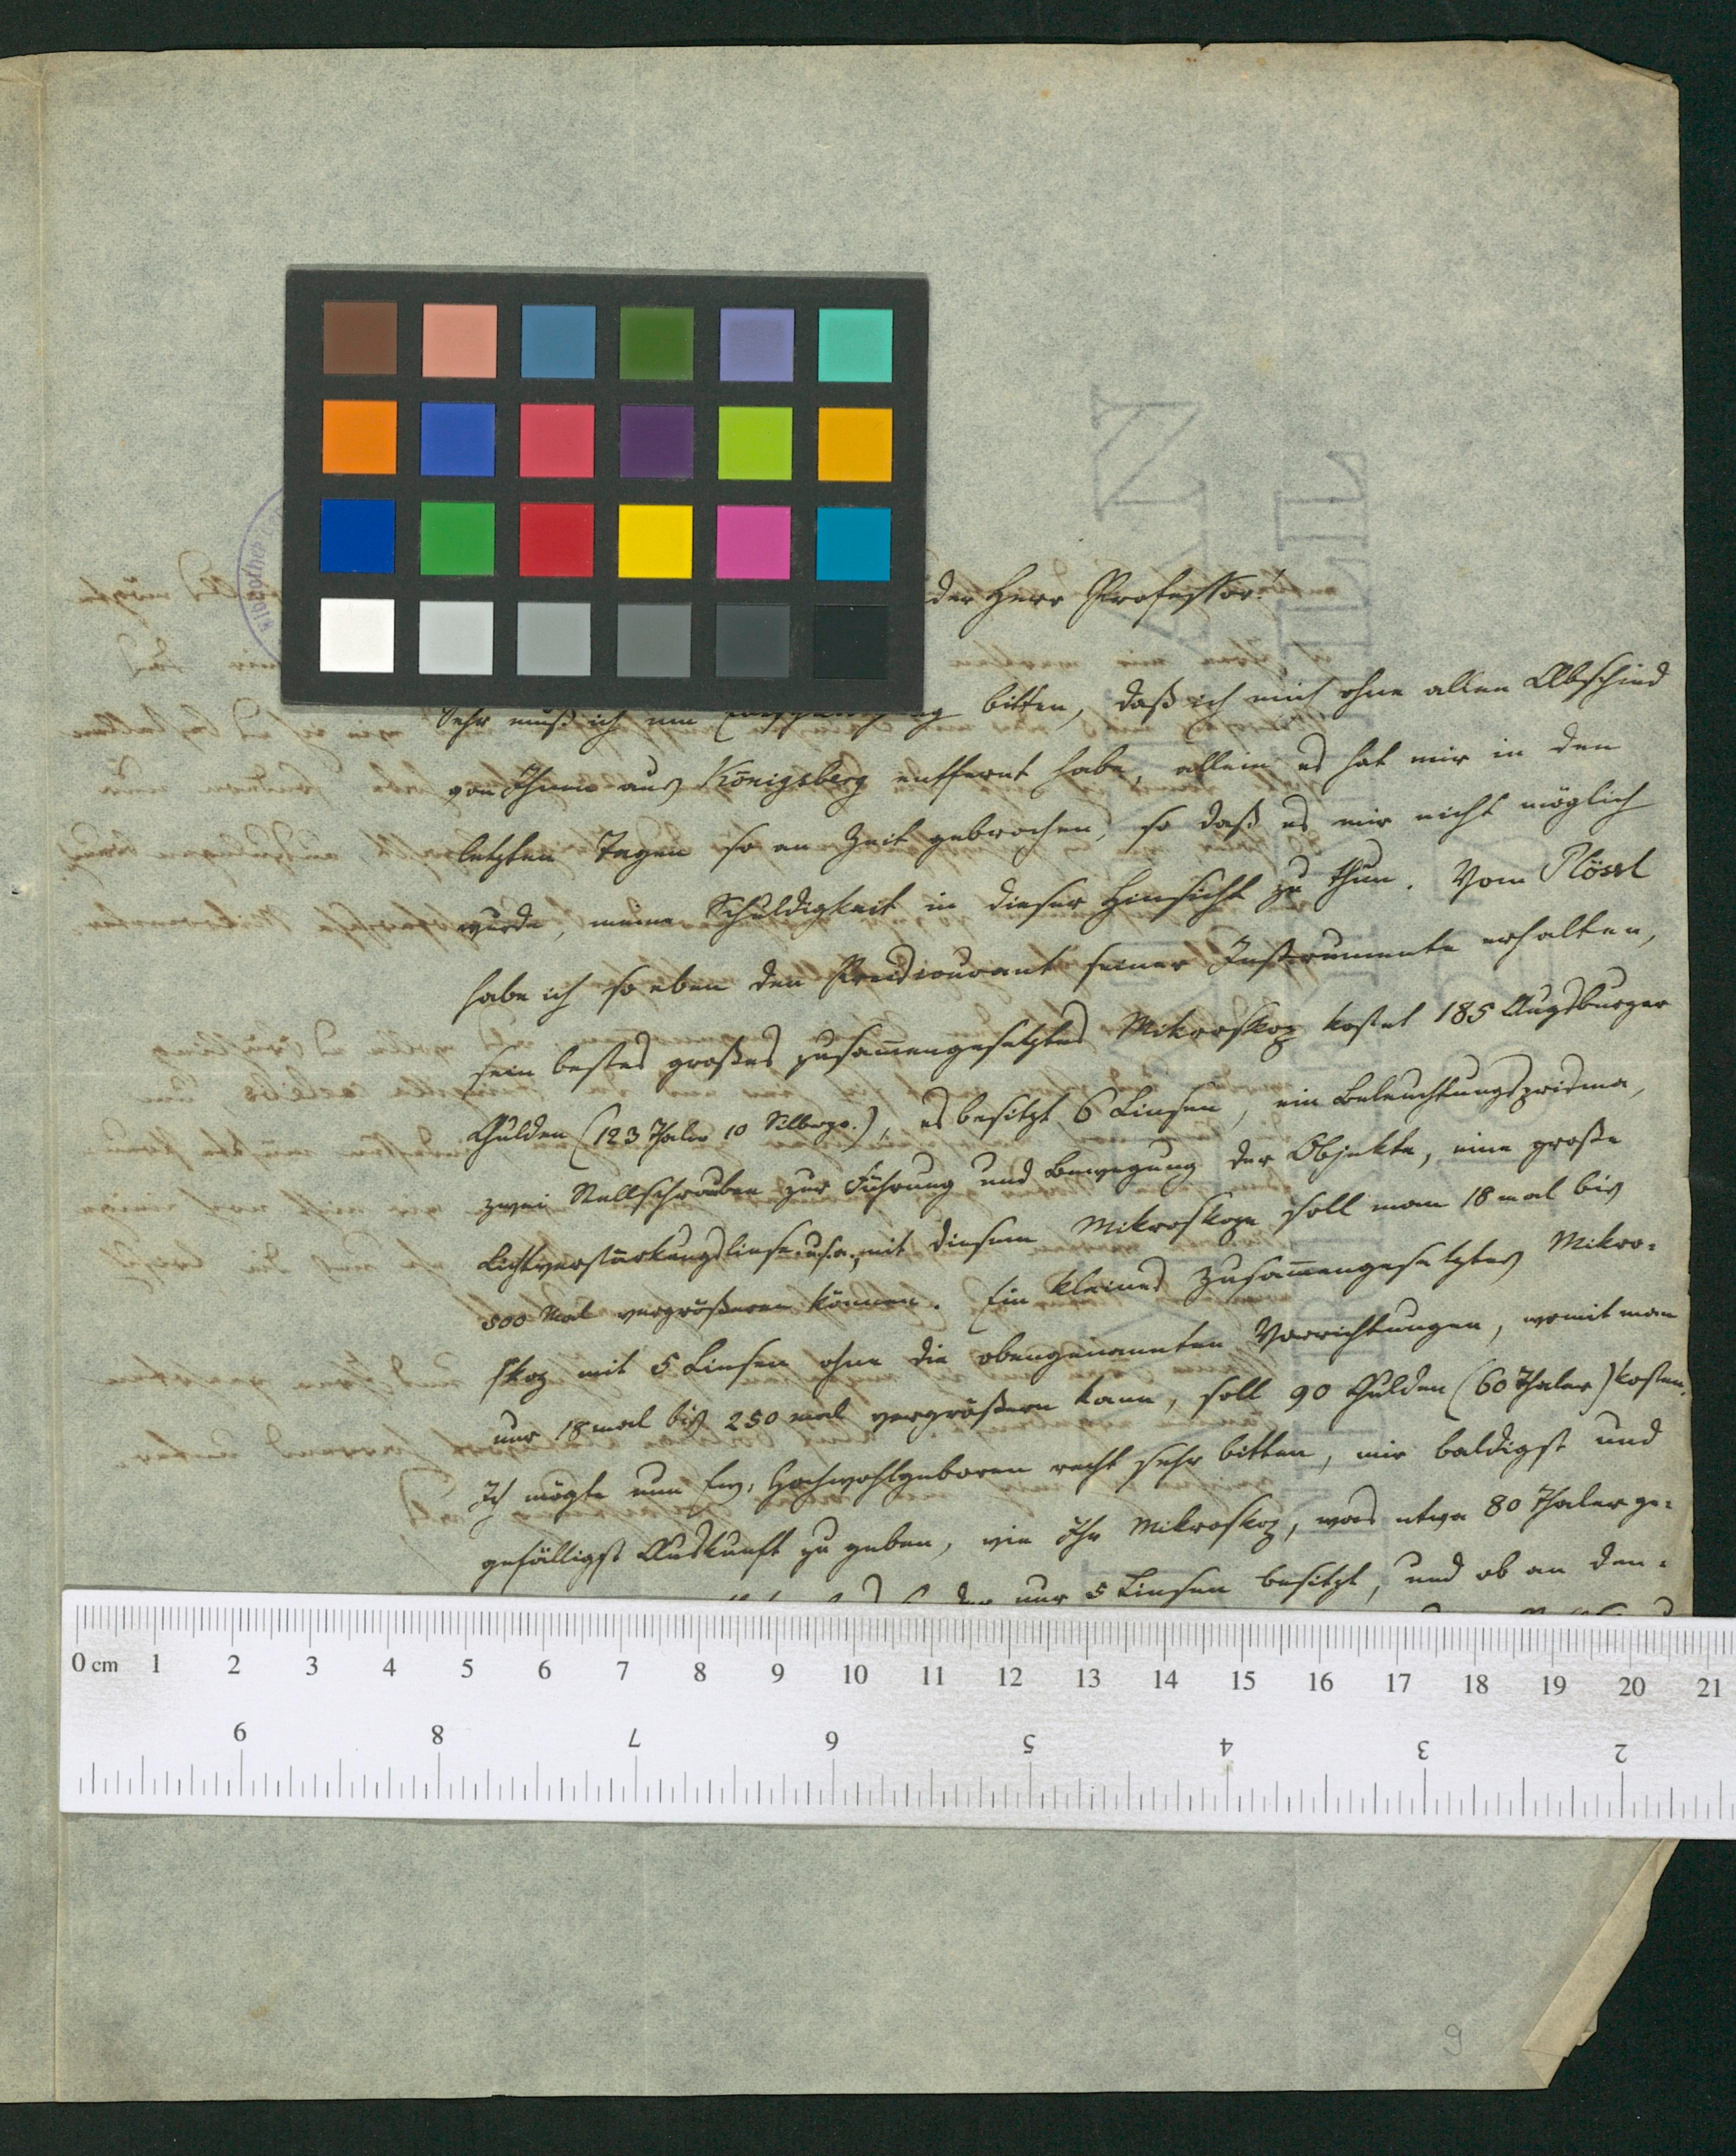 der Herr Professor!
Sehr muß ich um bitten, daß ich mich ohne allen Abschied
von Ihnen aus Königsberg entfernt habe, allein es hat mir in den
letzten Tagen so an Zeit gebrochen, so daß es mir nicht möglich
wurde, meine Schuldigkeit in dieser Hinsicht zu thun. Vom Plössl
habe ich so eben den Preiscourant seiner Instrumente erhalten,
sein bestes großes zusam̄engesetztes Mikroskop kostet 185 Augsburger
Gulden (123 Thaler 10 Silbergr.), es besitzt 6 Linsen, ein Beleuchtungsprisma,
zwei Stellschrauben zur Führung und Bewegung der Objekte, eine große
Lichtverstärkungslinse u.s.w., mit diesem Mikroskope soll man 18 mal bis
500 Mal vergrößeren können. Ein kleines zusam̄engesetztes Mikro-
skop mit 5 Linsen ohne die obengenannten Vorrichtungen, womit man
nur 18 mal bis 250 mal vergrößern kann, soll 90 Gulden (60 Thaler) kosten.
Ich mögte nun Ew. Hochwohlgeboren recht sehr bitten, mir baldigst und
gefälligst Auskunft zu geben, wie Ihr Mikroskop, was etwa 80 Thaler ge-
nur 5 Linsen besitzt, und ob an den-
0 cm 1 2 3 4 5 6 7 8 9 10 11 12 13 14 15 16 17 18 19 20 21
9 8 7 6 5 4 3 2
9